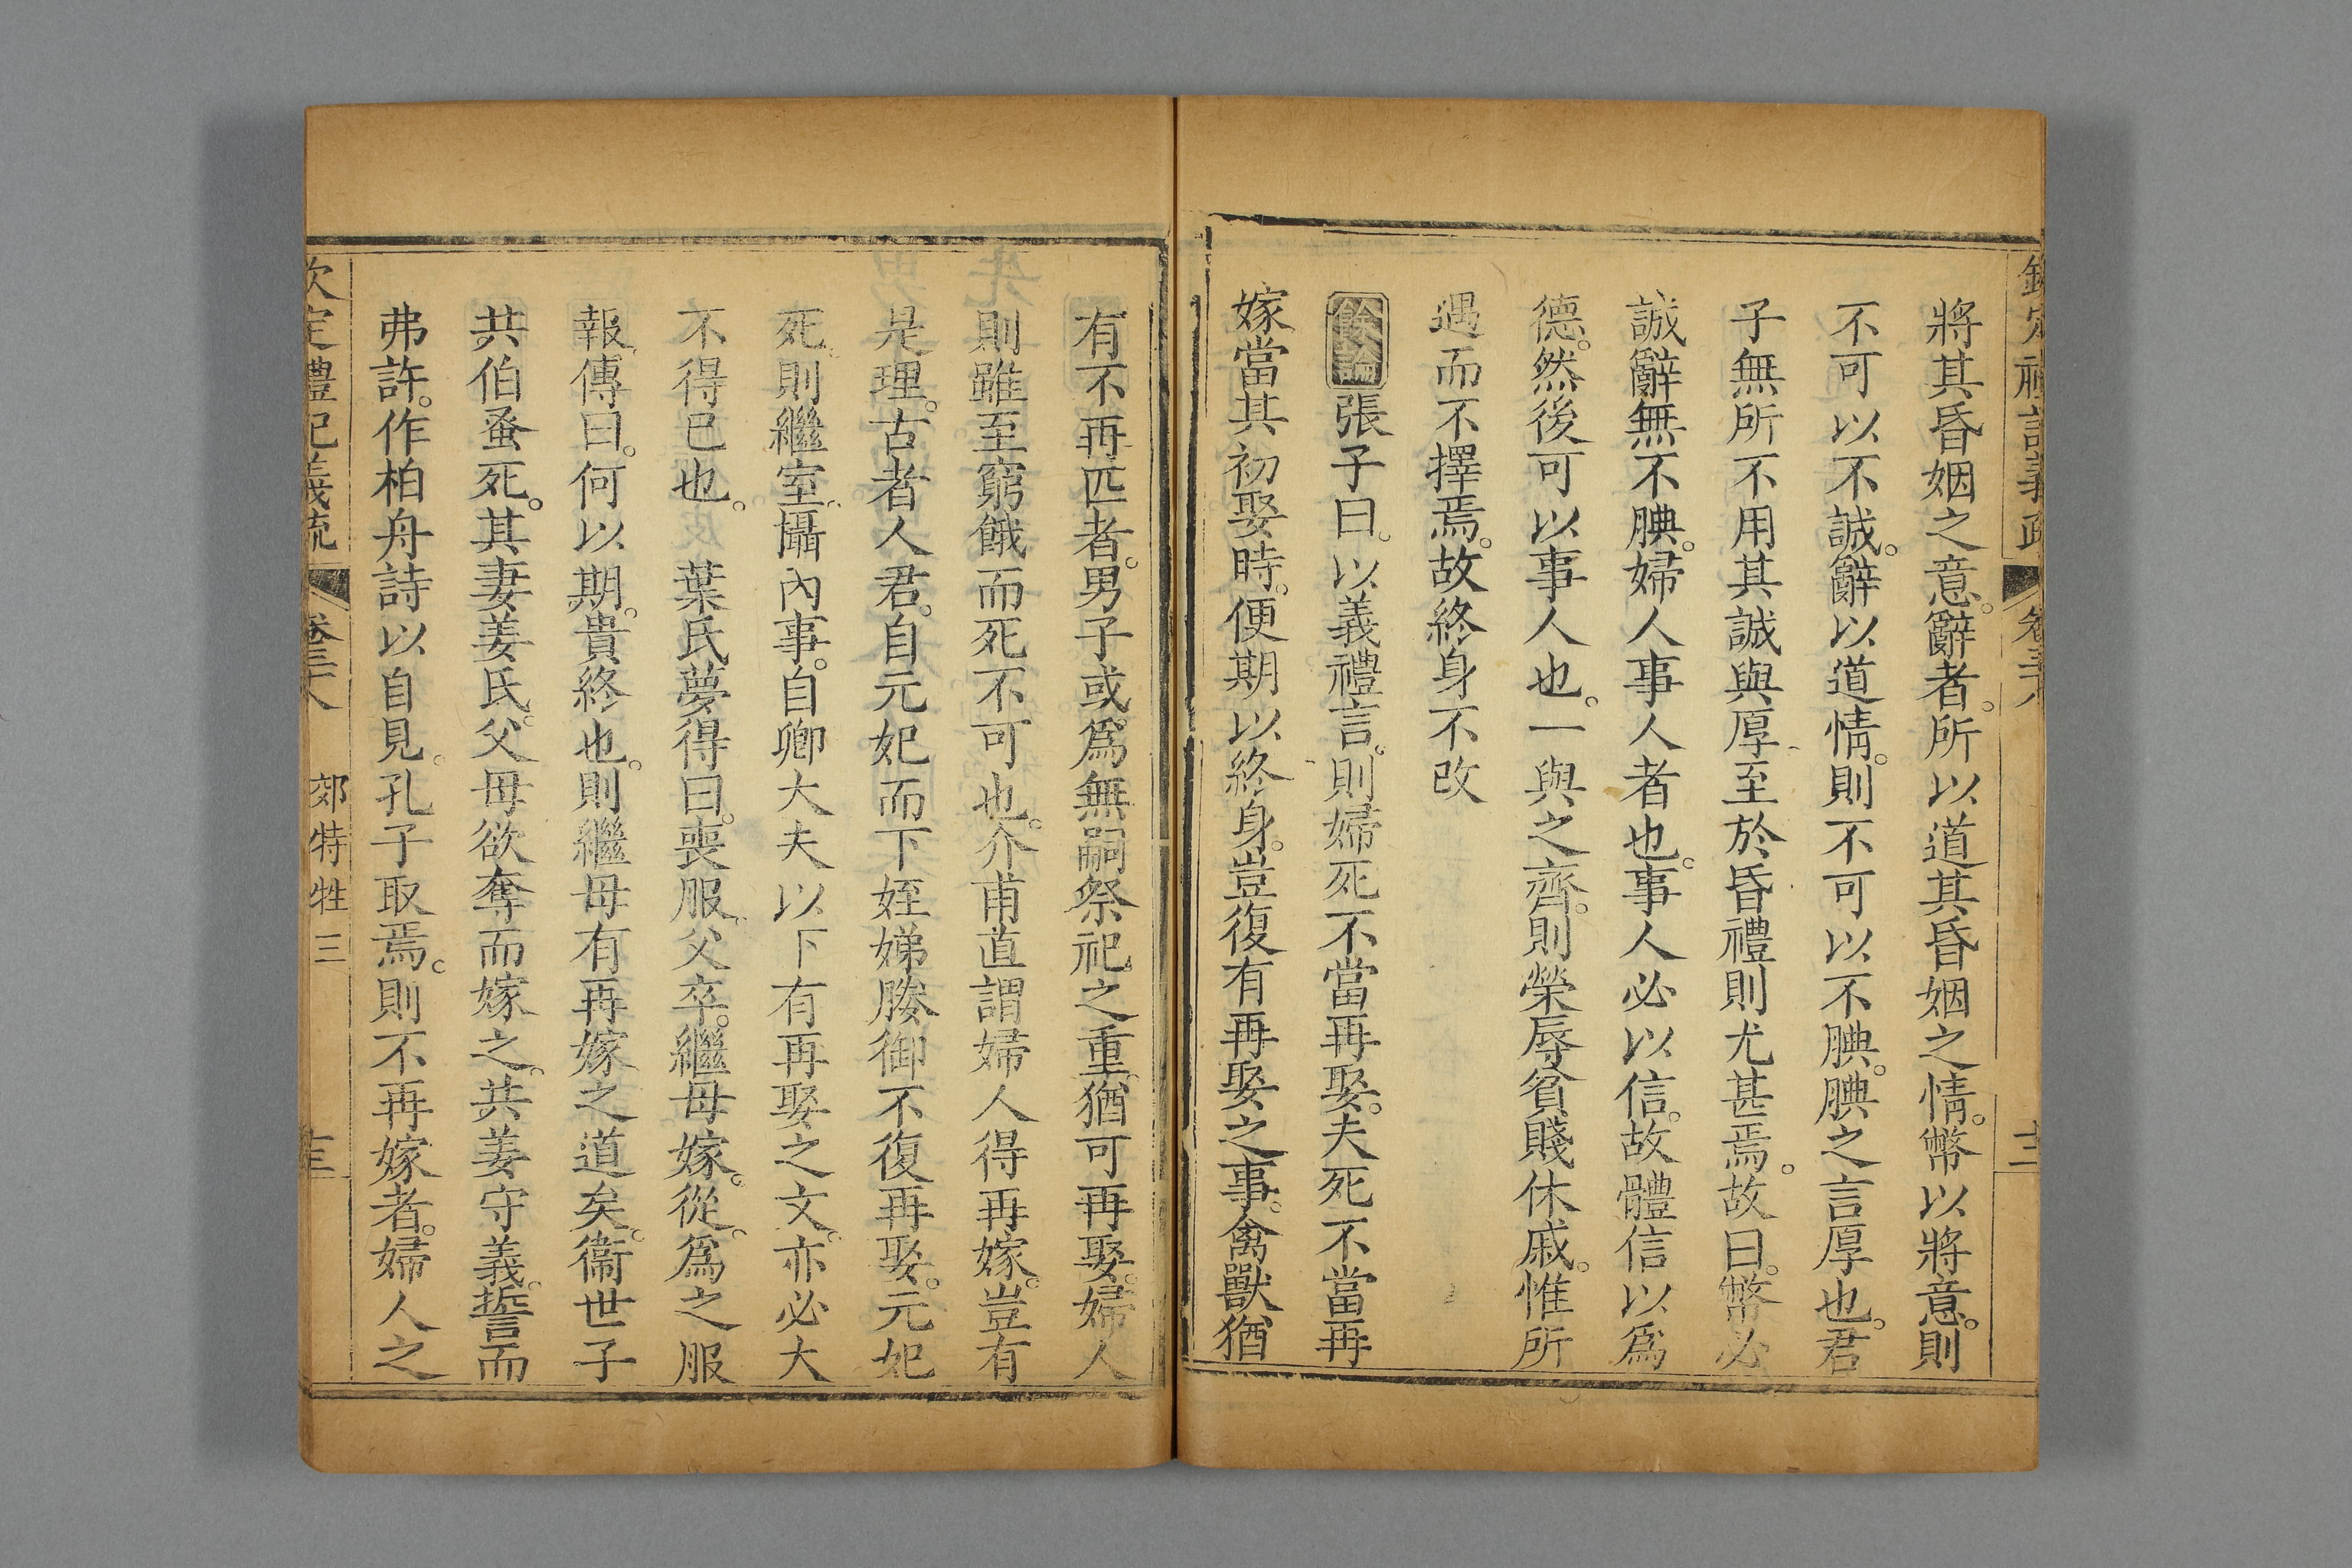 將其昏姻之意。辭者。所以道其昏姻之情。幣以將意。則
不可以不誠。辭以道情。則不可以不腆。腆之言厚也。君
子無所不用其誠與厚至於昏禮則尤甚焉。故曰。幣必
誠辭無不腆。婦人事人者也。事人必以信。故體信以爲
德。然後可以事人也。一與之齊。則榮辱貧賤休戚。惟所
遇而不擇焉。故終身不改
餘論張子曰。以義禮言。則婦死不當再娶。夫死不當再
嫁當其初娶時。便期以終身。豈復有再娶之事。禽獸猶
有不再匹者。男子或爲無嗣祭祀之重。猶可再娶。婦人
則雖至窮餓而死不可也。介甫直謂婦人得再嫁。豈有
是理。古者人君。自元妃而下姪娣媵御不復再娶。元妃
死。則繼室。攝內事。自卿大夫以下有再娶之文。亦必大
不得已也。葉氏夢得曰。喪服。父卒。繼母嫁。從。爲之服
報。傳曰。何以期。貴終也。則繼母有再嫁之道矣。衞世子
共伯蚤死。其妻姜氏。父母欲奪而嫁之。共姜守義。誓而
弗許。作柏舟詩以自見。孔子取焉。則不再嫁者。婦人之
欽定禮記義疏 卷三六 郊特牲三